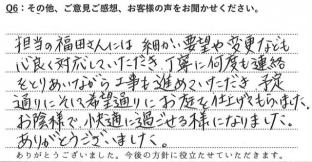 Q6：その他、ご意見ご感想、お客様の声をお聞かせください。
担当の福田さんには 細かい要望や変更なども
心良く対応していただき、丁寧に何度も連絡
をとりあいながら工事も進めていただき、予定
通りにそして希望通りにお庭を仕上げてもらいました。
お陰様で、快適に過ごせる様になりました。
ありがとうございました。
ありがとうございました。今後の方針に役立たせていただきます。